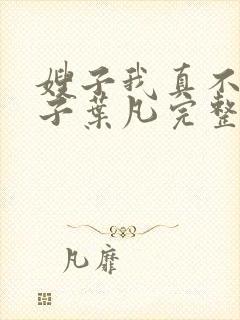 嫂子我真不
子葉凡完整
凡靡